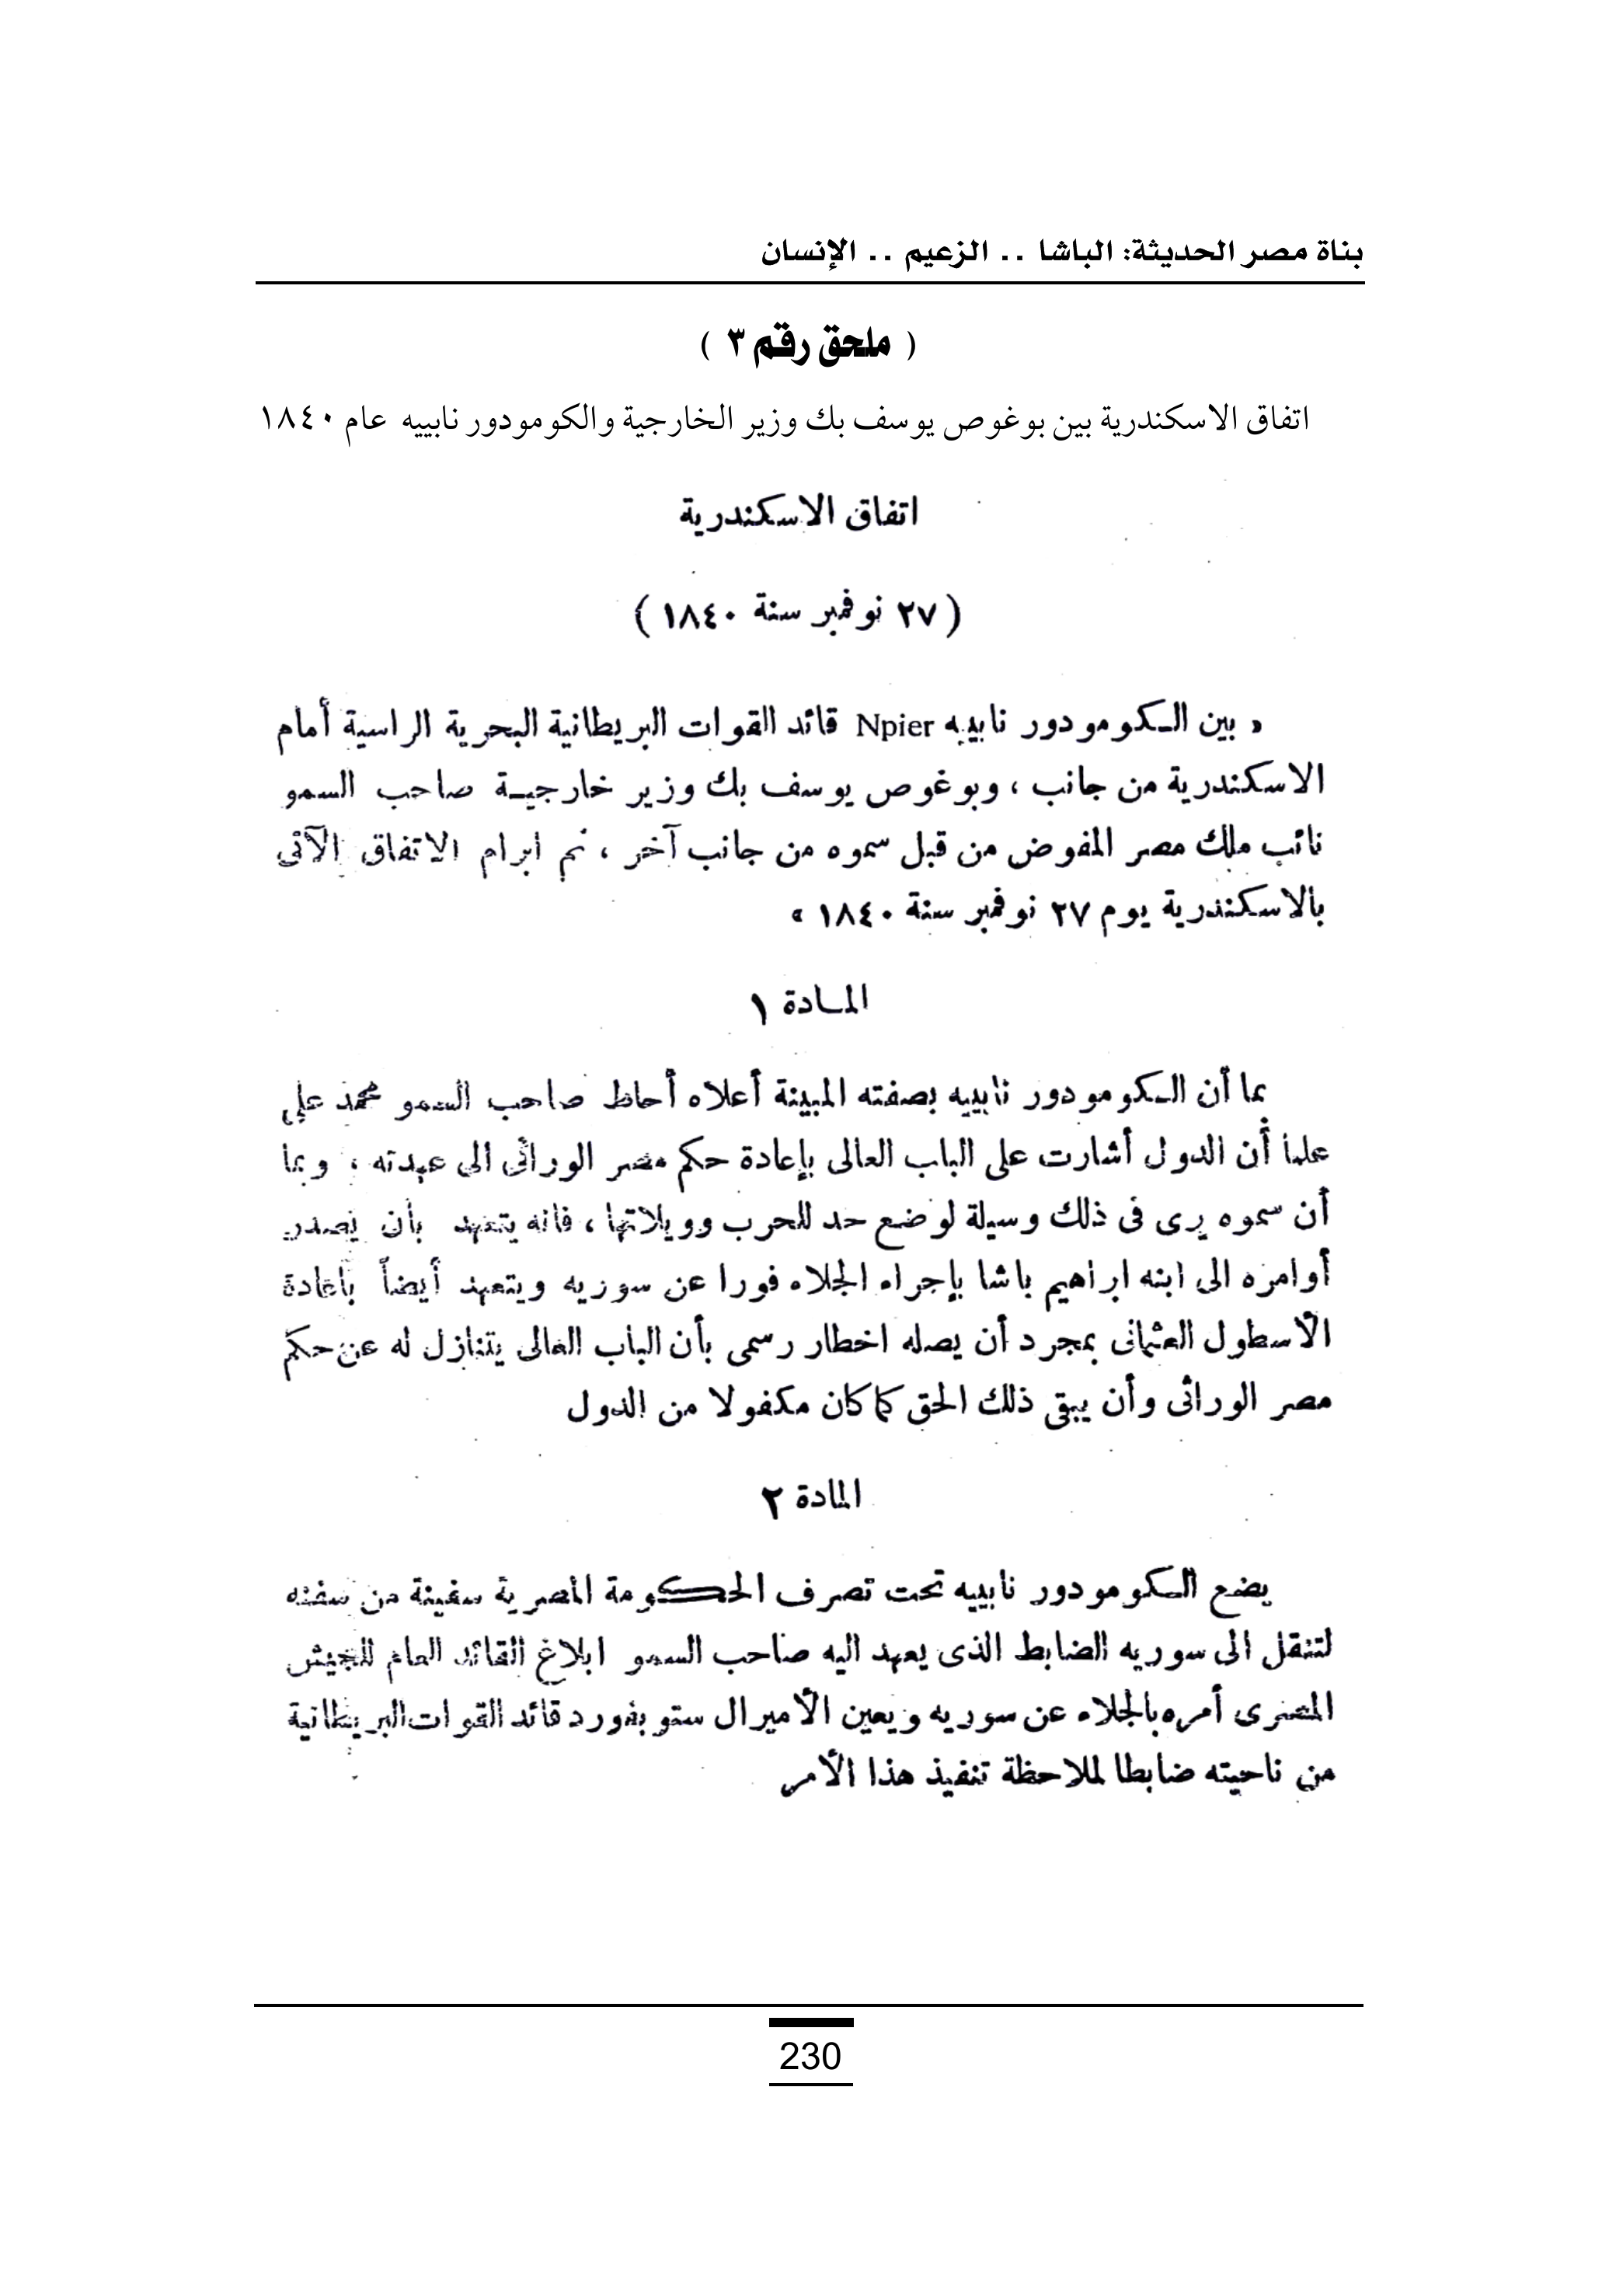 بناة مصر الحديثة: الباشا .. الزعيم .. الإنسان
( ملحق رقم ٣ )
اتفاق الاسكندرية بين بوغوص يوسف بك وزير الخارجية والكومودور نابييه عام ١٨٤٠
اتفاق الاسكندرية
( ٢٧ نوفمبر سنة ١٨٤٠ )
« بين الكومودور نابييه Npier قائد القوات البريطانية البحرية الراسية أمام
الاسكندرية من جانب ، وبوغوص يوسف بك وزير خارجية صاحب السمو
نائب ملك مصر المفوض من قبل سموه من جانب آخر ، تم ابرام الاتفاق الآتى
بالاسكندرية يوم ٢٧ نوفمبر سنة ١٨٤٠ »
المادة ١
بما أن الكومودور نابييه بصفته المبينة أعلاه أحاط صاحب السمو محمد على
علما بأن الدول أشارت على الباب العالى بإعادة حكم مصر الوراثى الى عهدته ، وبما
أن سموه يرى فى ذلك وسيلة لوضع حد للحرب وويلاتها ، فانه يتعهد بأن يصدر
أوامره الى ابنه ابراهيم باشا بإجراء الجلاء فورا عن سوريه ويتعهد أيضاً باعادة
الأسطول العثمانى بمجرد أن يصله اخطار رسمى بأن الباب العالى يتنازل له عن حكم
مصر الوراثى وأن يبقى ذلك الحق كما كان مكفولا من الدول
المادة ٢
يضع الكومودور نابييه تحت تصرف الحكومة المصرية سفينة من سفنه
لتنقل الى سوريه الضابط الذى يعهد اليه صاحب السمو ابلاغ القائد العام للجيش
المصرى أمره بالجلاء عن سوريه ويعين الأميرال ستوبفورد قائد القوات البريطانية
من ناحيته ضابطا لملاحظة تنفيذ هذا الأمر
230